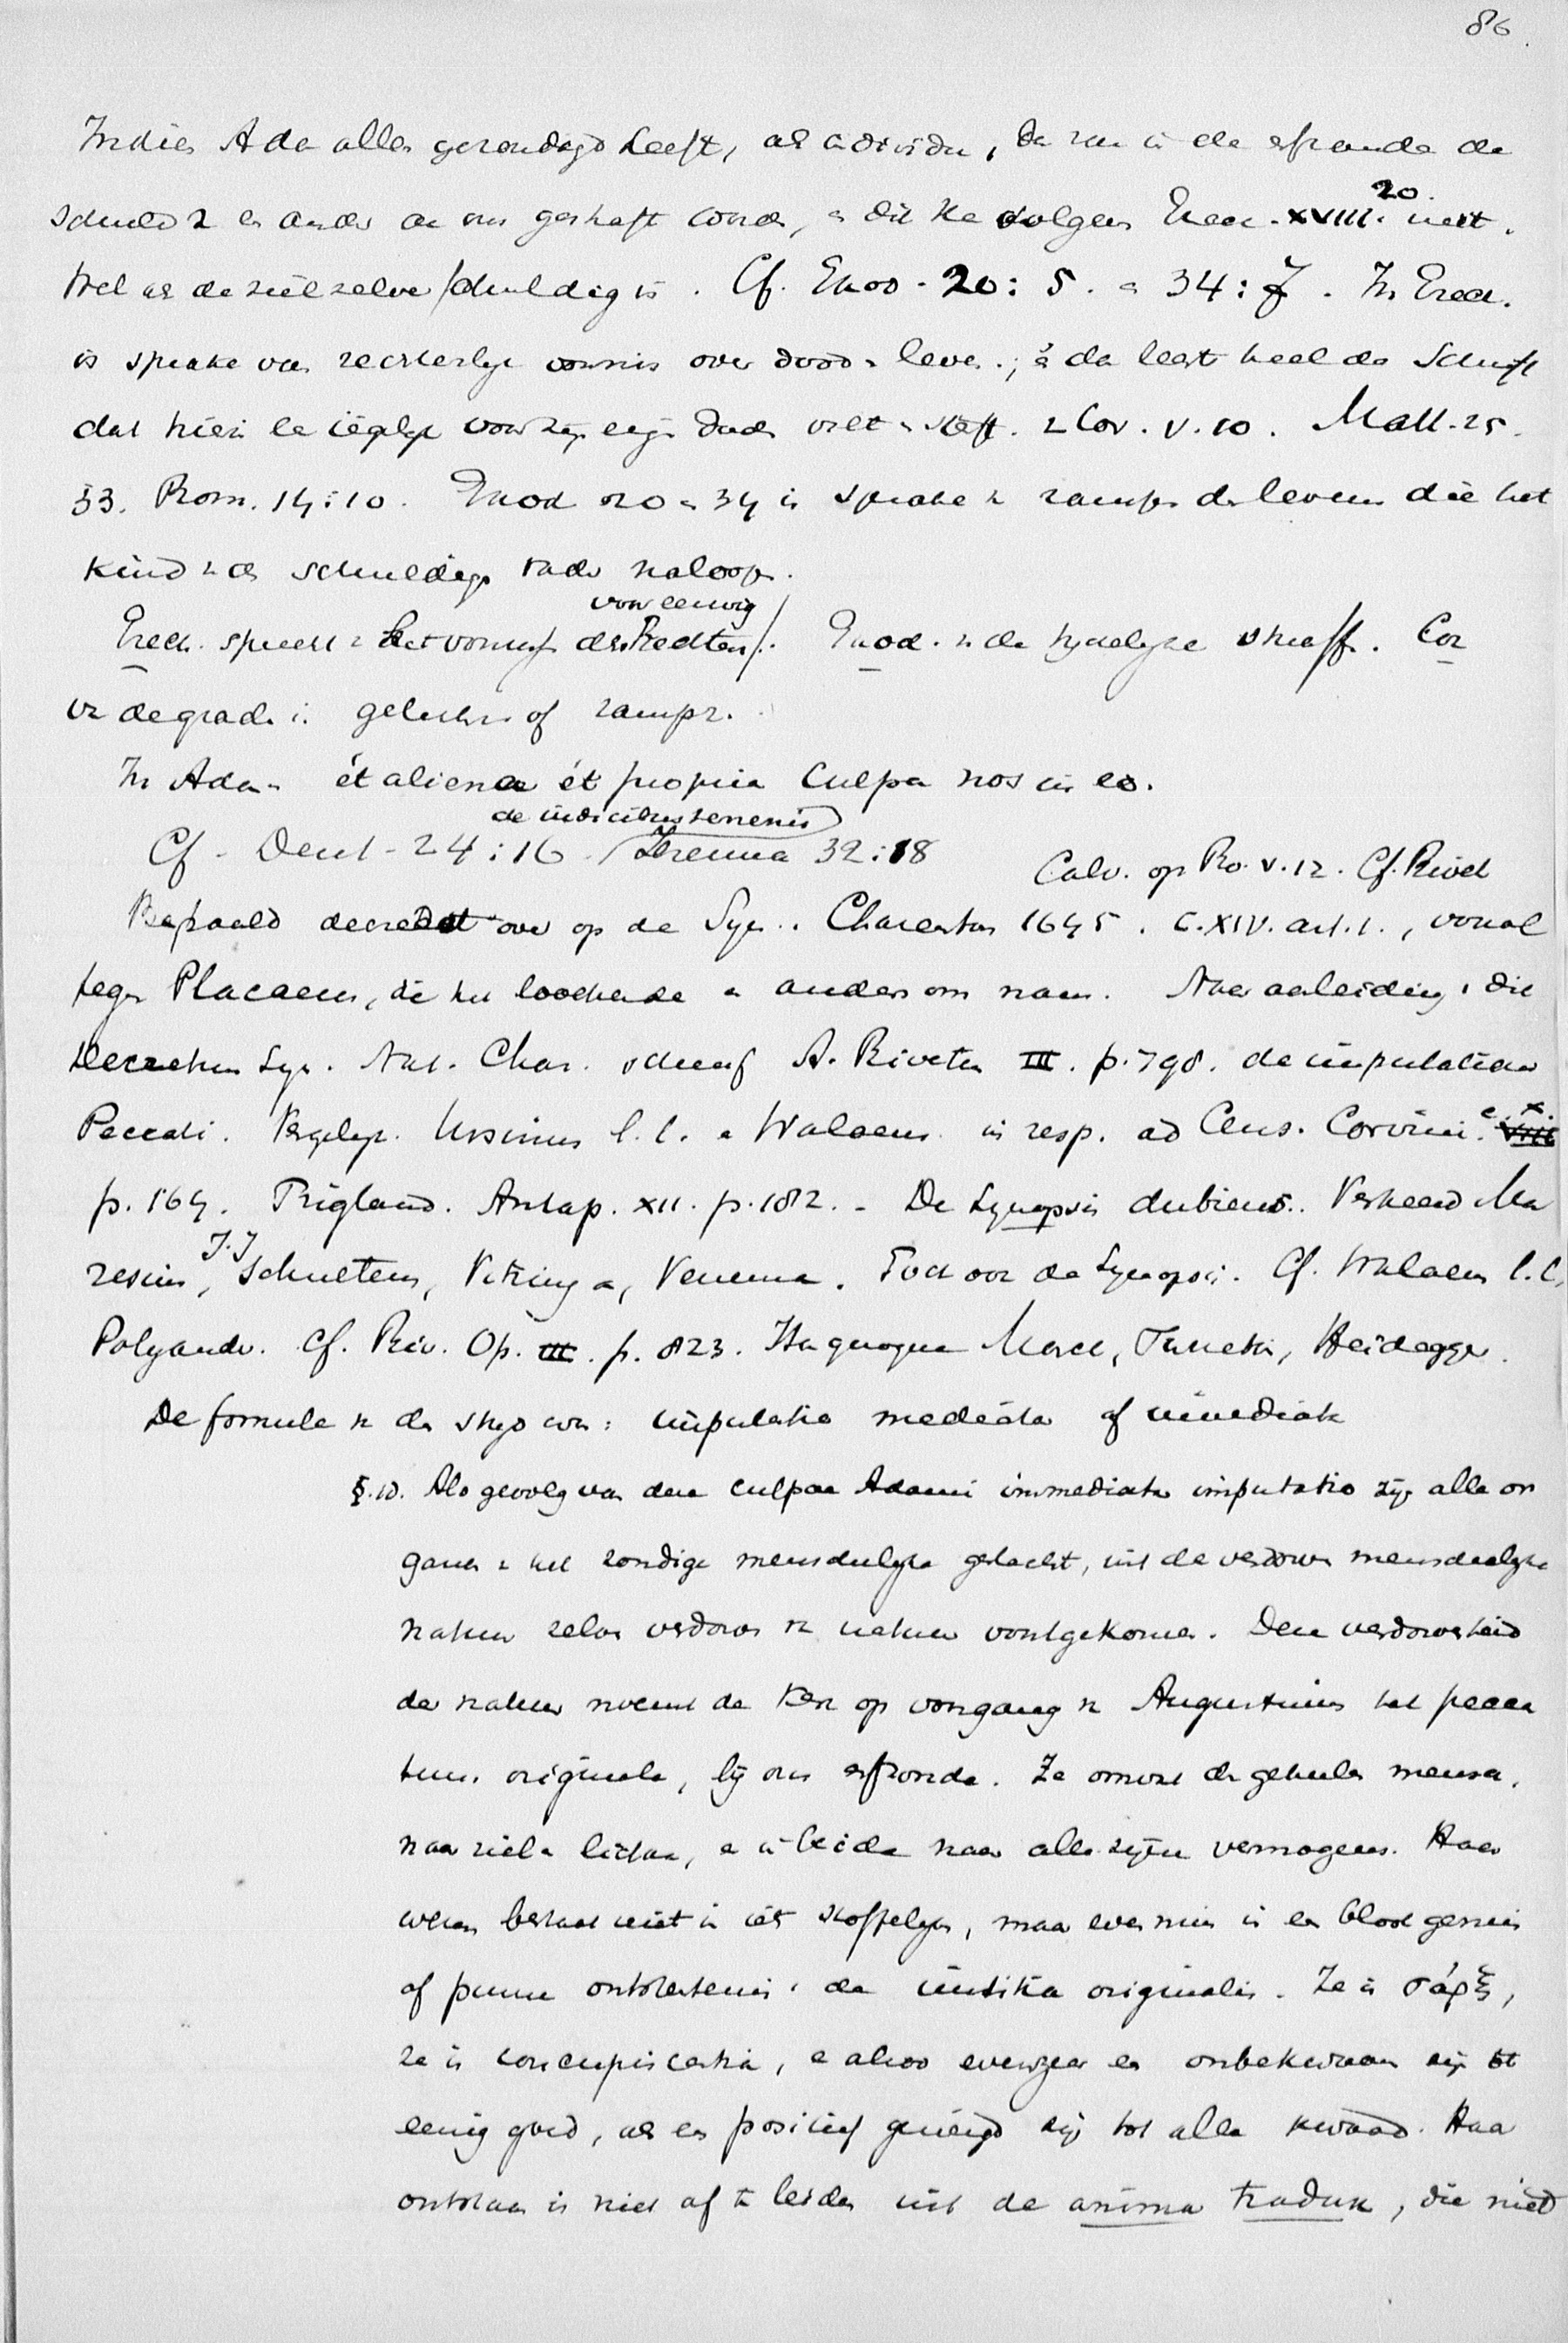 86
Indien Ada alles gezondigd heeft, als individu, da zou in de erfzonde de
schuld v. en ander aan ons gestraft word, en dit ka volgens Ezech. XVIII. 20. niet.
Wel als de ziel zelve schuldig is. Cf. Exod. 20: 5. en 34: 7. In Ezech.
is sprake van rechterlyk vonnis over dood en leve.; en da leert heel de Schrift
dat hierin ieglyk voor zyn eigen daden strafft. 2 Cor. V. 10. Matt. 25.
33. Rom. 14:10. Exod 20 en 34 is sprake v. rampen des levens die het
kind v. d. schuldige vader naloopen.
Ezech. spreekt v. het vonnis des Rechters voor eeuwig. Exod. v. de tydelyke straff. Cor
vr de grade in geluk of ramp.
In Ada. et aliena et propria culpa nos in eo.
Cf. Deut. 24:16. de iudicibus terrenis Jeremia 32:18
Calv. op Ro. V. 12. Cf. Rivet
Bepaald decreet over op de Syn. Charenton 1645. C. XIV. art. 1., vooral
tegen Placaeus, die het loochende en anders om nam. Naar aanleiding v. dit
Decretum Syn. Nat. Char. schreef A. Rivetus III. p. 798. de imputatione
Peccati. Vergelyk. Ursinus l.l. en Walaeus in resp. ad Cens. Corvini c. X.
p. 164. Trigland. Antap. XII. p. 182. - De Synopsis dubieus. Verkeerd Ma
resius, J.J. Schultens, Vitringa, Venema. Toch voor de Synopsis. Cf. Walaeus l.l.
Polyandr. Cf. Riv. Op. III. p. 823. Ita quoque Marck, Turretin, Heidegger.
De formule v. de stryd was: imputatio mediata of immediata
§. 10. Als gevolg van deze culpae Adami immediata imputatio zyn alle or
ganen v. het zondige menschelyke geslacht, uit de verdorven menschelyke
natuur zelve verdorven v. natuur voortgekomen. Deze verdorvenheid
der natuur noemt de Kerk op voorgang v. Augustinus het pecca
tum originale, by ons erfzonde. Ze omvat de geheelen mensch,
naar ziel en lichaam, en in beide naar alle zijne vermogens. Haar
wezen bestaat niet in iets stoffelyks, maar evenmin in een bloot gemis
of pure ontstentenis v. de iustitia originalis. Ze is σάρξ,
ze is concupiscentia, en alzoo evenzeer een onbekwaam zijn tot
eenig goed, als en positief geneigd zij tot alle kwaad. Haar
ontstaan is niet af te leiden uit de anima tradux, die niet